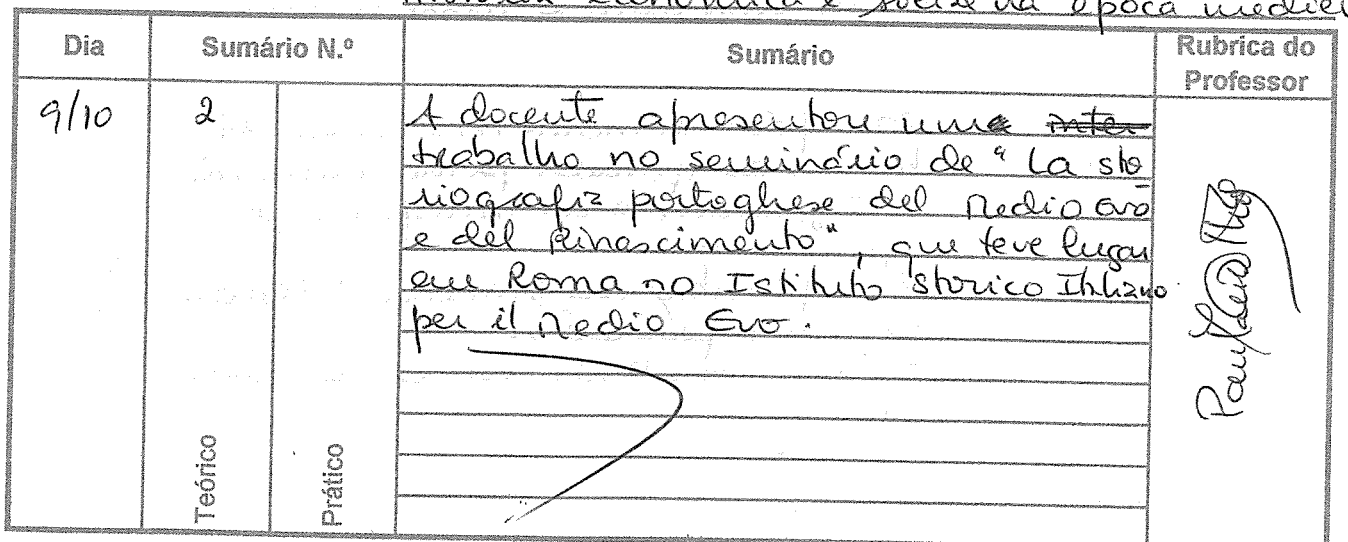 económica e social na época medieval
Dia Sumário N.º Sumário Rubrica do Professor
9/10 2 A docente apresentou uma inter
trabalho no seminário de "La sto
riografia portoghese del Medio Evo
e del Rinascimento", que teve lugar
em Roma no Istituto Storico Italiano
per il Medio Evo.
Teórico Prático